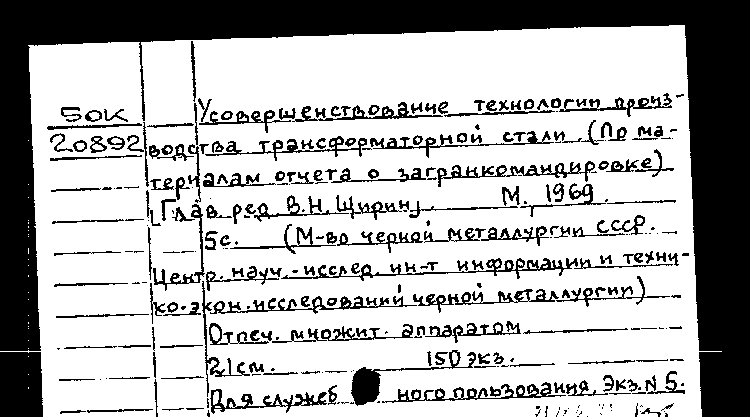 БОК
20892
Усовершенствование технологии произ-
водства трансформаторной стали. (По ма-
териалам отчета о загранкомандировке)
[Глав. ред. В.Н. Щирин]. М., 1969.
5с. (М-во черной металлургии СССР.
Центр. науч.-исслед. ин-т информации и техни-
ко-экон. исследований черной металлургии)
Отпеч. множит. аппаратом.
21 см. 150 экз.
Для служеб ного пользования. Экз. N 5.